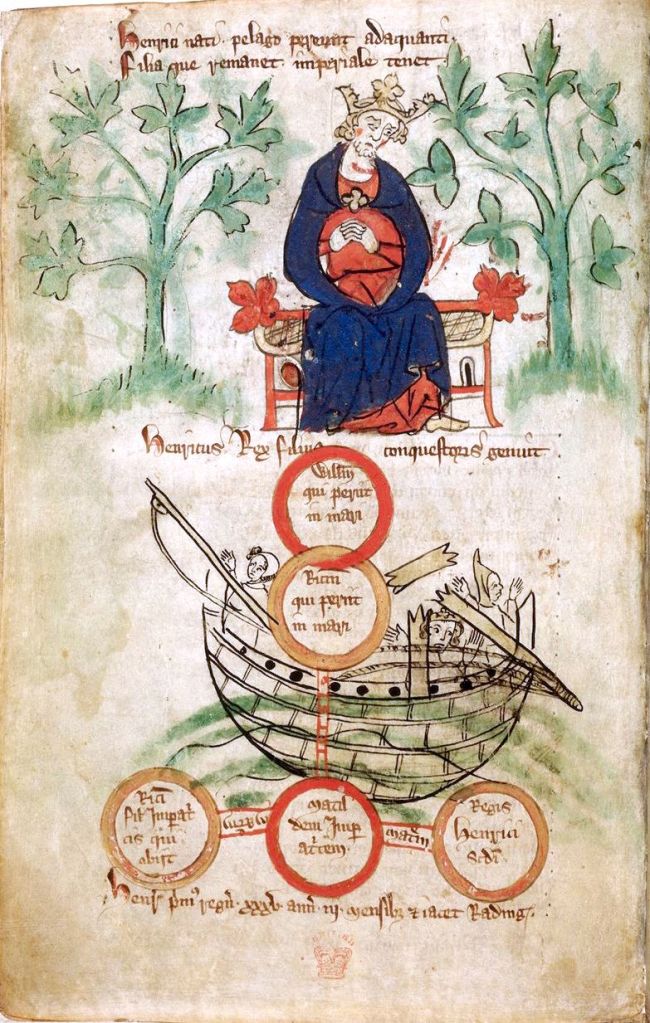 Henrici nati pelago pereunt adaquanti
Filia que remanet imperiale tenet
Henricus Rex filius conquestoris genuit
Willm
qui perut
in mari
Ricm
qui perut
in mari
Rici
fil Imperat
cis qui
obiit
Matil
dem Imp
atcem
matrem
Regis
Henrici
scdi
Henr pm regn xxxv ann iii mensibz et iacet Rading